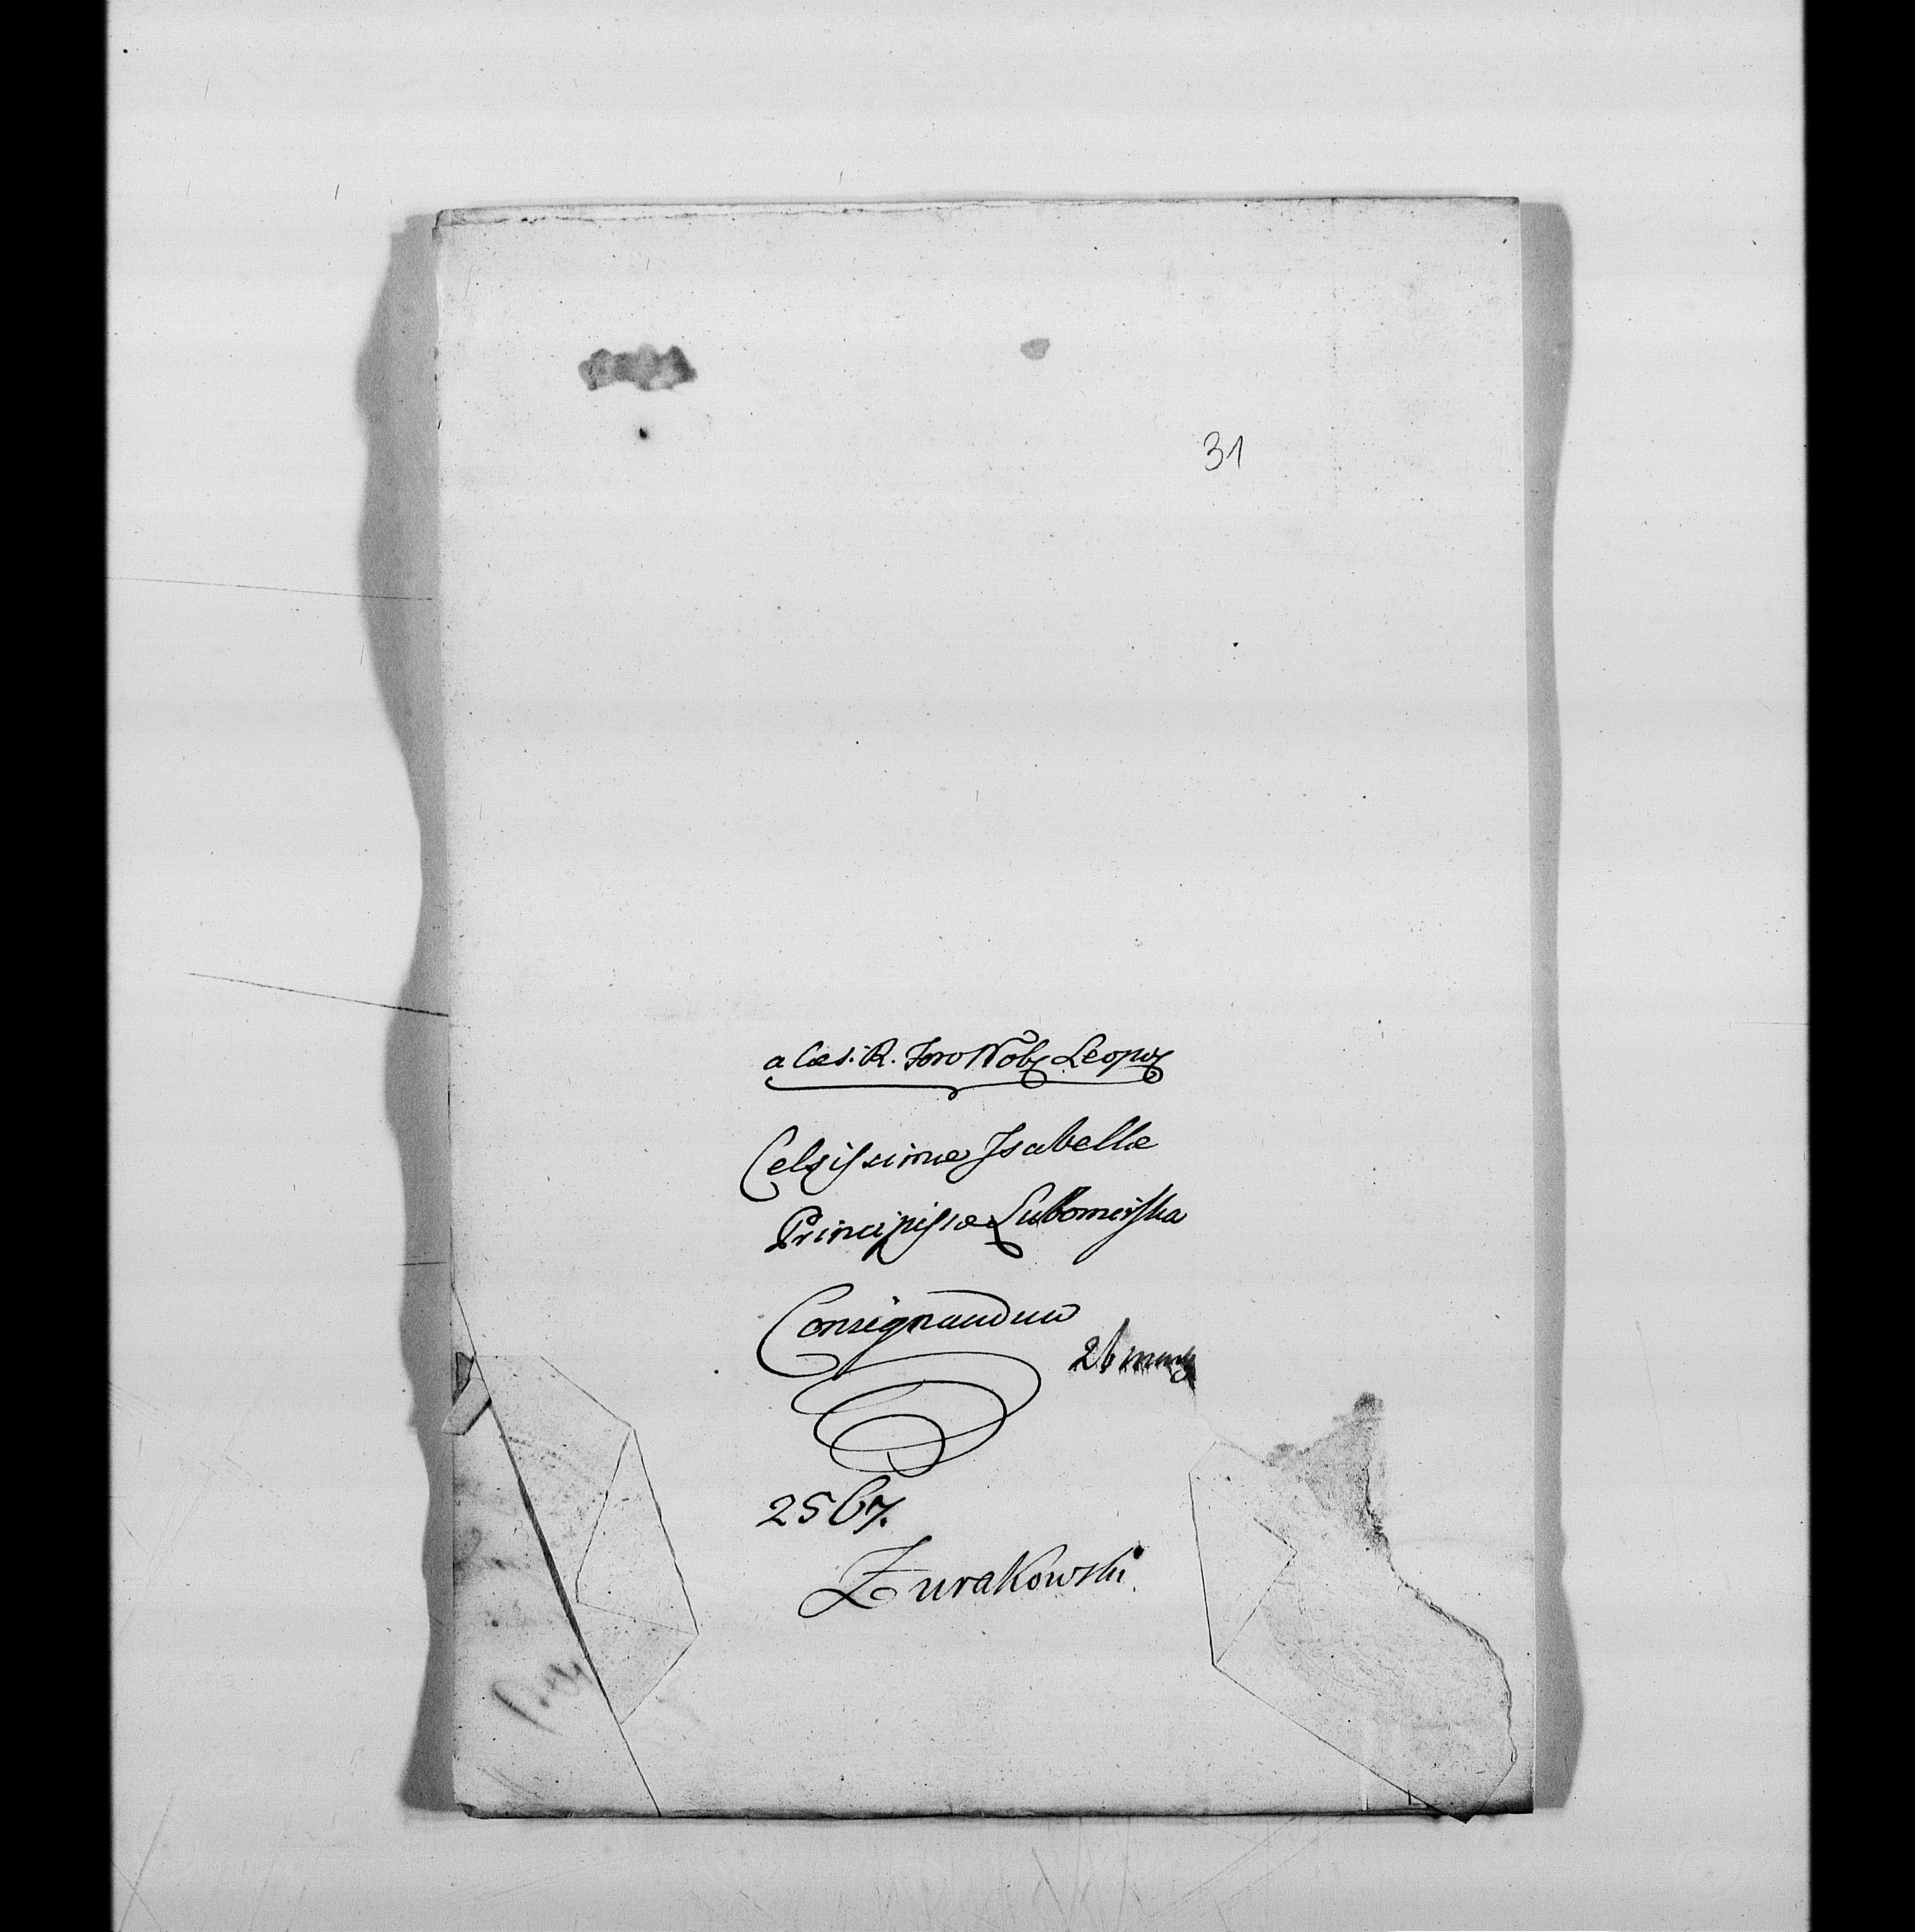 31
a Cæs. R. Foro Nob. Leopol
Celsissimæ Isabellæ
Principissæ Lubomirska
Consignandum
26
2567.
Zurakowski